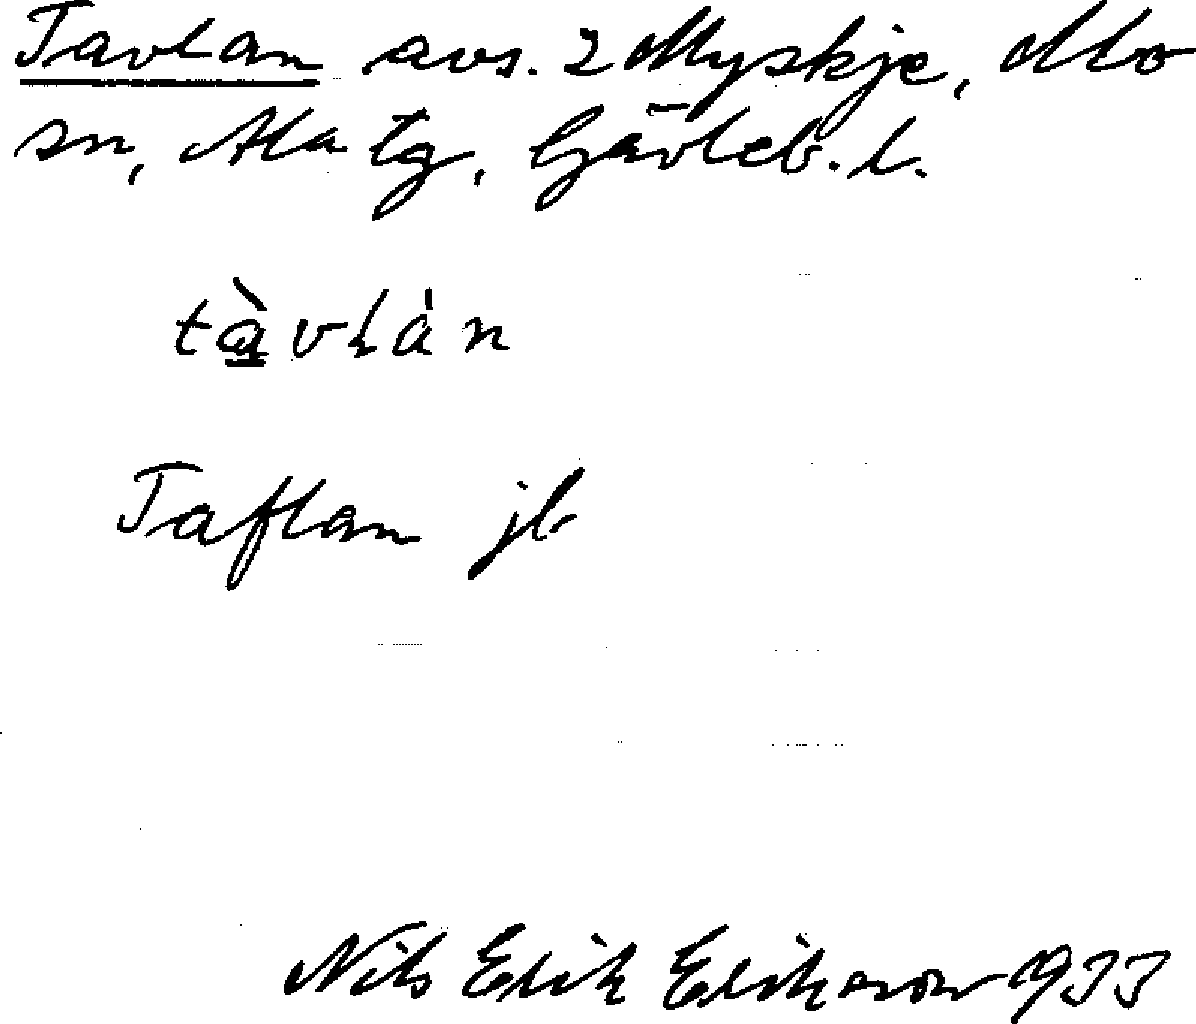 Tavlan avs. 2 Myskje, Mo
sn, Ala tg, Gävleb. l.
tàvlàn
Taflan jb
Nils Erik Erikson 1933